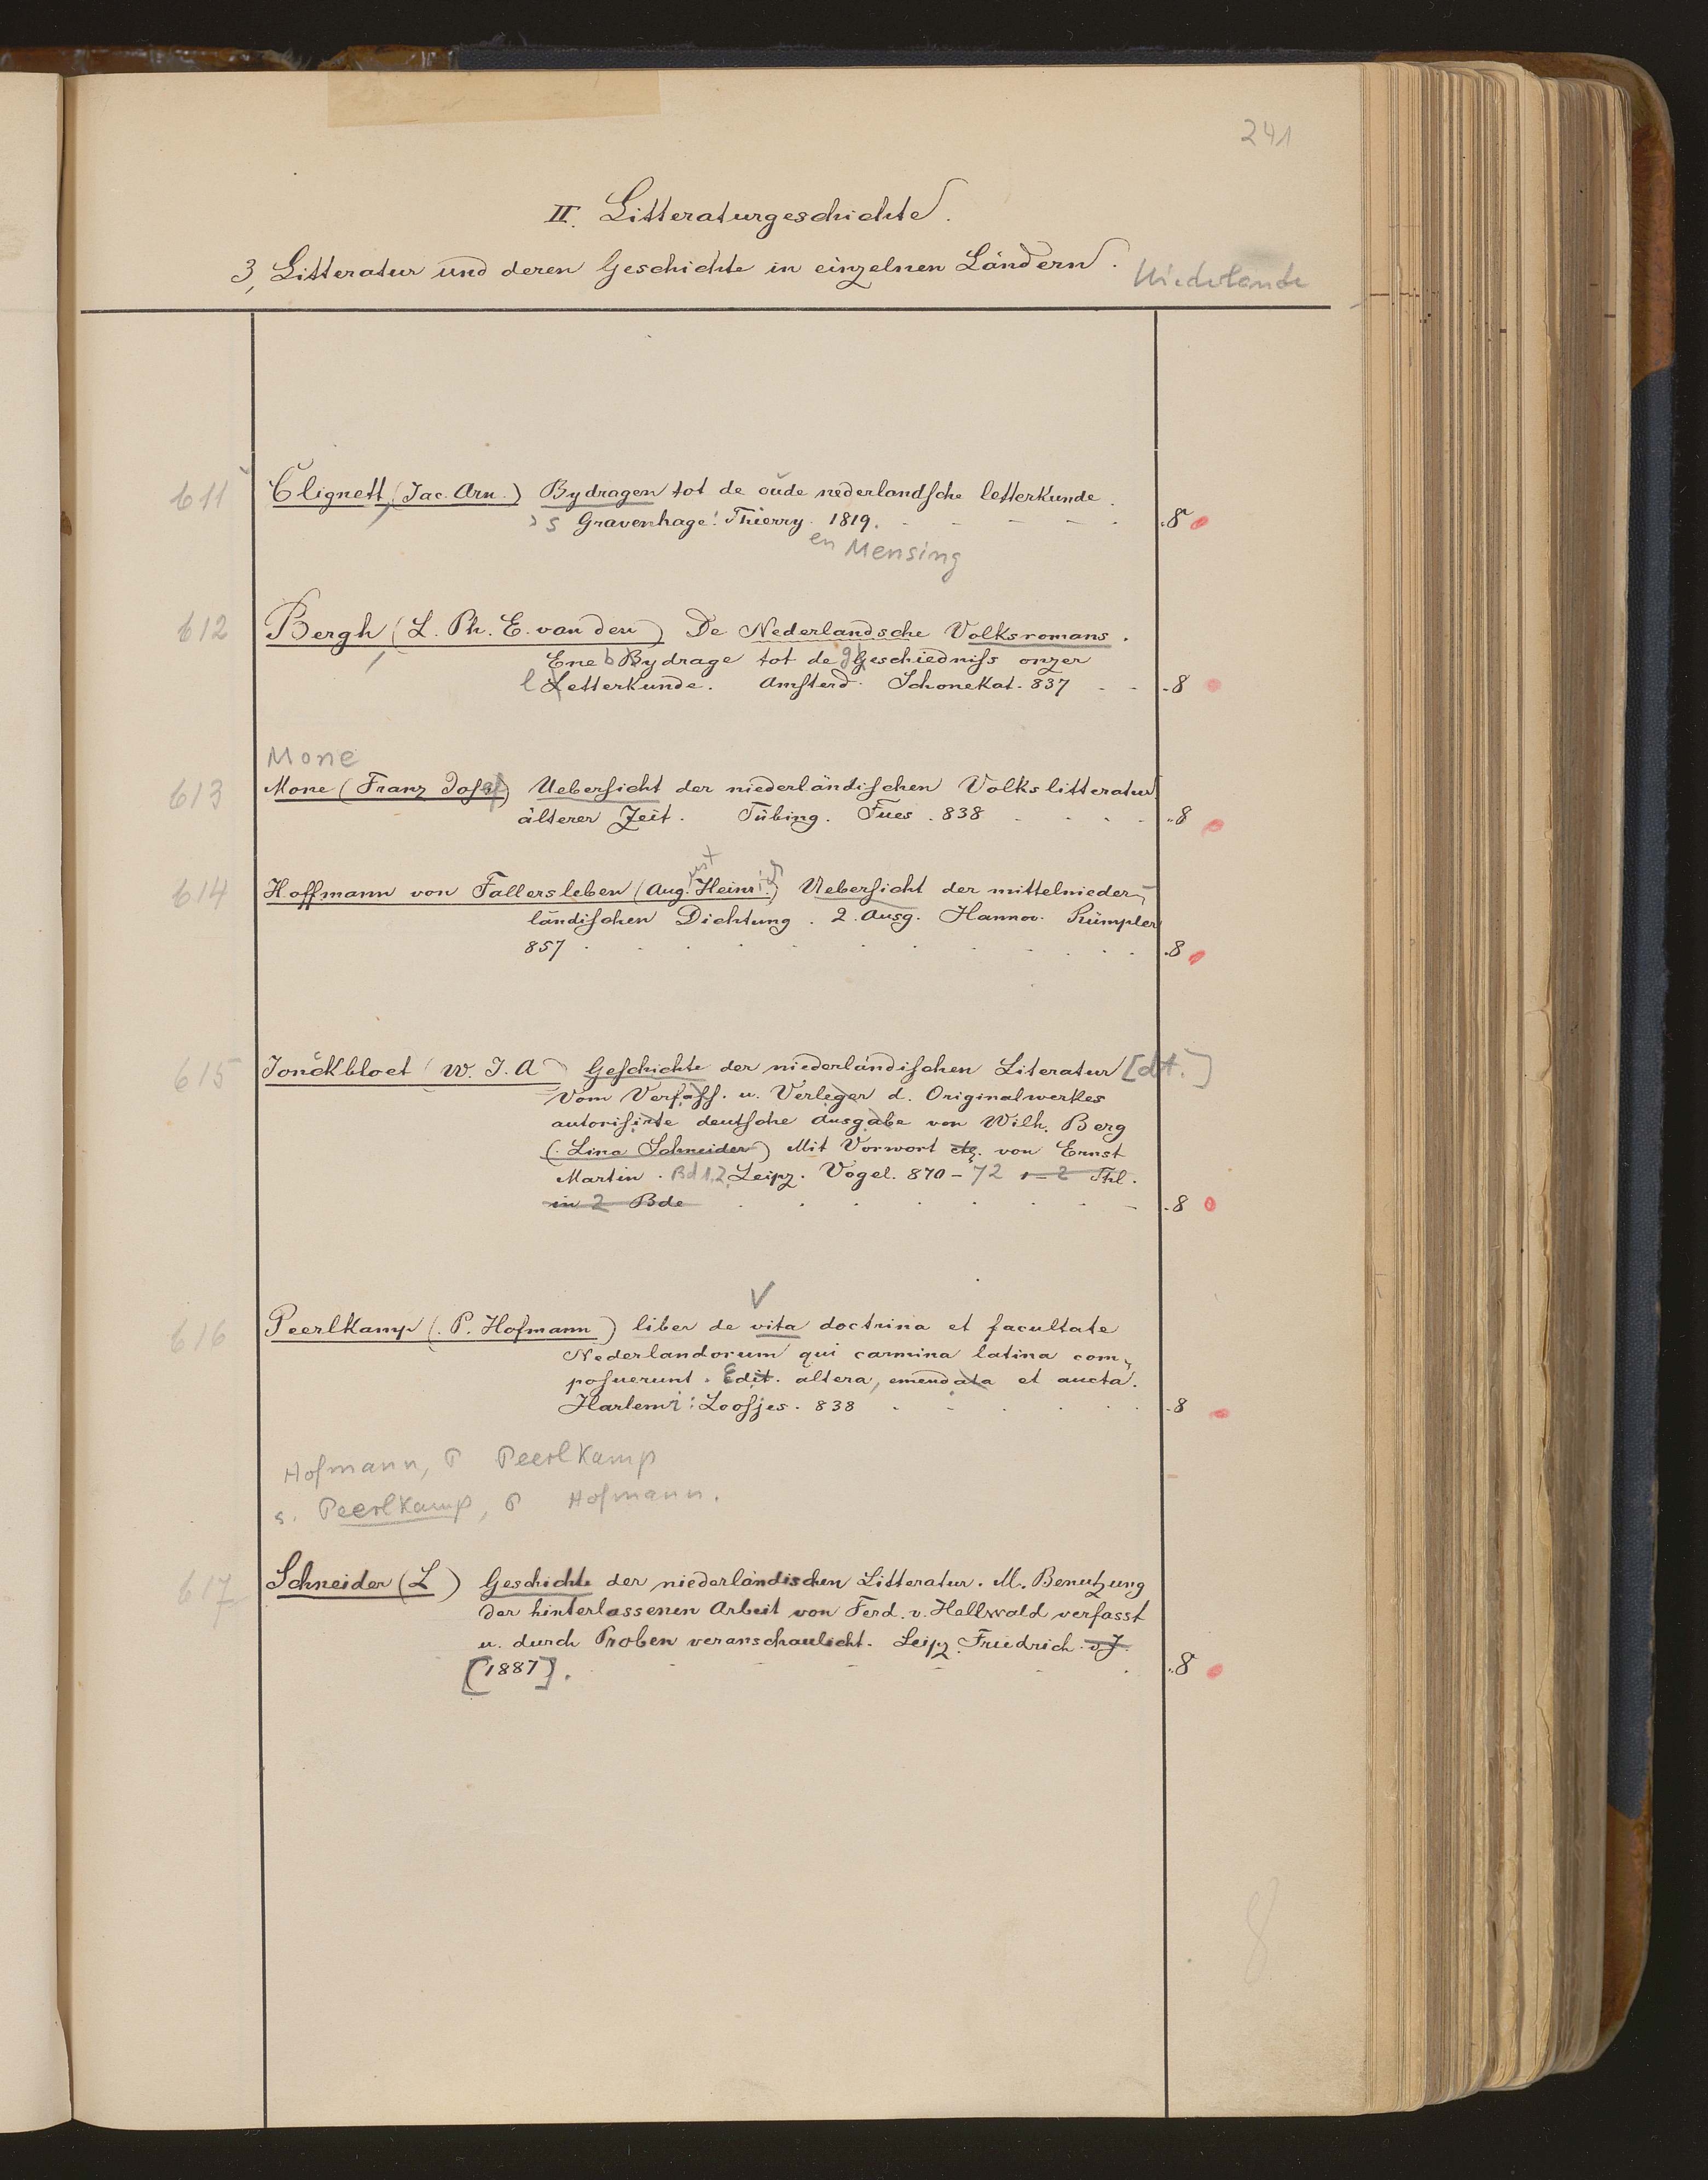 241
II. Litteraturgeschichte.
3, Litteratur und deren Geschichte in einzelnen Ländern. Niederlande
611 Clignett (Jac. Arn.) Bydragen tot de oude nederlandsche letterkunde.
's Gravenhage: Thierry. 1819. 8
en Mensing
612 Bergh (L. Ph. E. van den) De Nederlandsche Volksromans.
Ene bydrage tot de geschiedniss onzer
letterkunde. Amsterd. Schonekat. 837 8
Mone
613 Mone (Franz Josef) Uebersicht der niederländischen Volkslitteratur
älterer Zeit. Tübing. Fues. 838 8
ust
614 Hoffmann von Fallersleben (Aug. Heinrich) Uebersicht der mittelnieder-
ländischen Dichtung. 2. Ausg. Hannov. Rümpler
857 8
615 Jonckbloet (W. J. A) Geschichte der niederländischen Literatur [dt.]
Vom Verfass. u. Verleger d. Originalwerkes
autorisirte deutsche Ausgabe von Wilh. Berg
(Lina Schneider) Mit Vorwort etc. von Ernst
Martin. Bd 1.2. Leipz. Vogel. 870-72 1-2 Thl.
in 2 Bde 8
V
616 Peerlkamp (P. Hofmann) liber de vita doctrina et facultate
Nederlandorum qui carmina latina com-
posuerunt. Edit. altera, emendata et aucta.
Harlemi: Loosjes. 838 8
Hofmann, P Peerlkamp
s. Peerlkamp, P Hofmann.
617 Schneider (L) Geschichte der niederländischen Litteratur. M. Benutzung
der hinterlassenen Arbeit von Ferd. v. Hellwald verfasst
u. durch Proben veranschaulicht. Leipz. Friedrich. o. J.
[1887]. 8
8